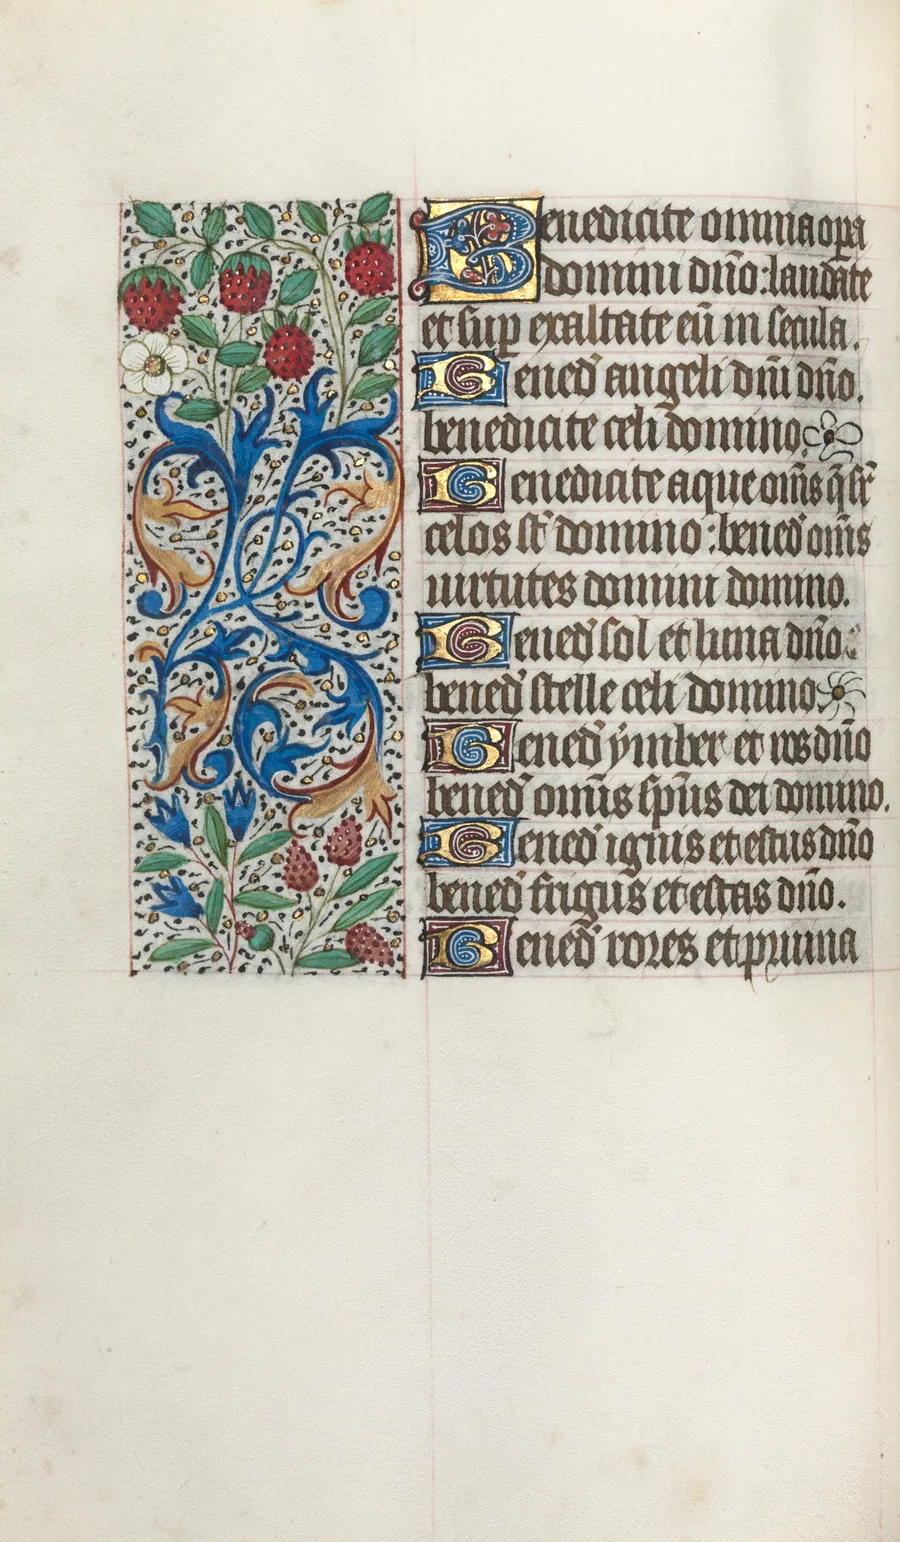 Benedicite omnia opa
domini dño: laudate
et sup exaltate eũ in secula.
Bened angeli dñi dño.
benedicite celi domino
Benedicite aque om̃s q̃ sr̃
celos st̃ domino: bened om̃s
uirtutes domini domino.
Bened sol et luna dño.
bened stelle celi domino
Bened ẏmber et ros dño
bened om̃is sp̃us dei domino.
Bened ignis et estus dño
bened frigus et estas dño.
Bened rores et pruina